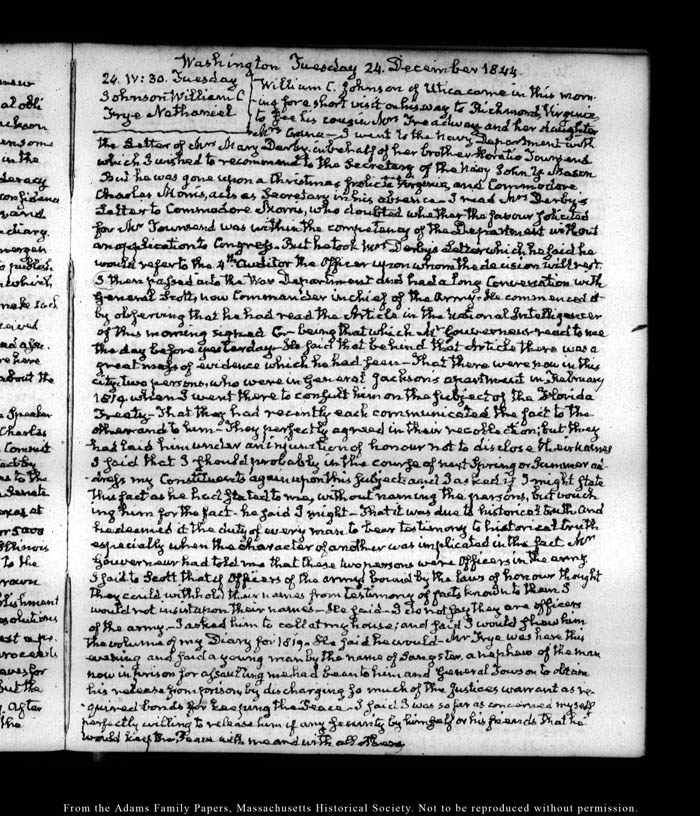 Washington Tuesday 24. December 1844.
24. IV: 30. Tuesday
Johnson William C
Frye Nathaniel
William C. Johnson of Utica came in this morn-
ing for a short visit on his way to Richmond, Virginia
to see his cousin Mrs Treadway and her daughter
I went to the Navy Department with
the Letter of Mrs Mary Derby in behalf of her brother Horatio Townsend
which I wished to recommend to the Secretary of the Navy John Y. Mason
But he was gone upon a Christmas frolic to Virginia, and Commodore
Charles Morris, acts as Secretary in his absence. I read Mrs Derby's
Letter to Commodore Morris, who doubted whether the favour solicited
for Mr Townsend was within the competency of the Department without
an application to Congress. But he took Mrs Derby's Letter which he said he
would refer to the 4th Auditor the Officer upon whom the decision will rest.
I then passed into the War Department and had a long Conversation with
General Scott, now Commander in chief of the Army. He commenced it
by observing that he had read the Article in the National Intelligencer
of this morning signed G.- being that which Mr Gouverneur read to me
the day before yesterday. He said that behind that Article there was a
great mass of evidence which he had seen - That there were now in this
city, two persons, who were in General Jackson's apartment in February
1819 when I went there to consult him on the subject of the Florida
Treaty - That they had recently each communicated the fact to the
other and to him - They perfectly agreed in their recollection; but they
had laid him under an injunction of honour not to disclose their names
I said that I should probably in the course of next Spring or Summer ad-
dress my Constituents again upon this subject and I asked if I might state
this fact as he had stated to me, without naming the persons, but vouch
ing him for the fact - he said I might - That it was due to historical truth and
he deemed it the duty of every man to bear testimony to historical truth
especially when the character of another was implicated in the fact. Mr
Gouverneur had told me that these two persons were Officers in the army.
I said to Scott that if Officers of the army bound by the laws of honour thought
they could withhold their names from testimony of facts known to them I
would not insist upon their names - He said - I do not say they are officers
of the army - I asked him to call at my house; and said I would shew him
the volume of my Diary for 1819. He said he would - Mr Frye was here this
evening and said a young man by the name of Sangster, a nephew of the man
now in prison for assaulting me had been to him and General Towson to obtain
his release from prison by discharging so much of the Justices warrant as re-
quired bonds for keeping the Peace - I said I was so far as concerned myself
perfectly willing to release him if any security by himself or his friends that he
would keep the Peace with me and with all others
From the Adams Family Papers, Massachusetts Historical Society. Not to be reproduced without permission.